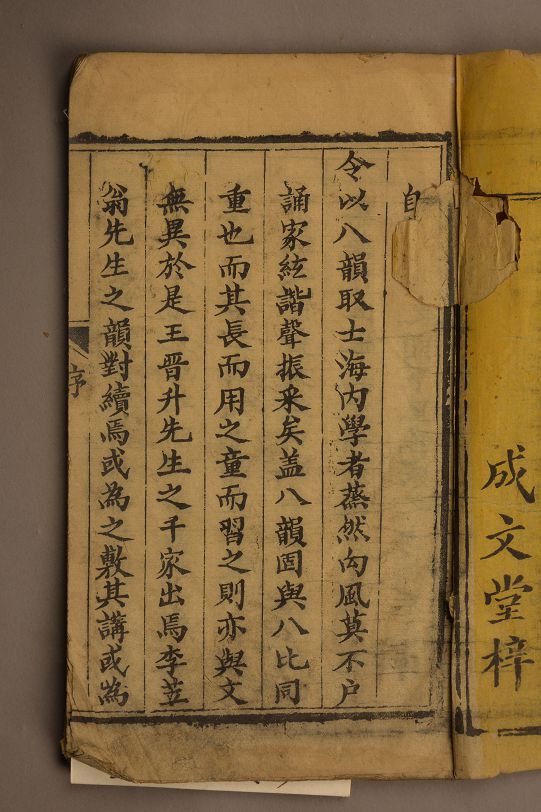 成文堂梓
自
令以八韻取士海内學者蒸然向風莫不户
誦家絃諧聲振采矣盖八韻固與八比同
重也而其長而用之童而習之則亦與文
無異於是王晋升先生之千家出焉李笠
翁先生之韻對續焉或為之敷其講或為
序